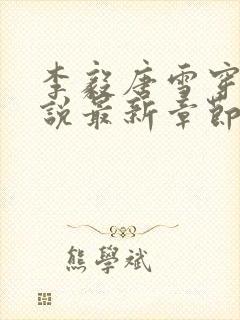 李毅唐雪穿
說最新章節
熊學斌